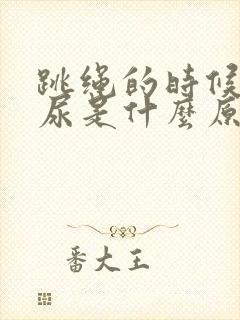 跳绳的時候
尿是什麼原
番大王